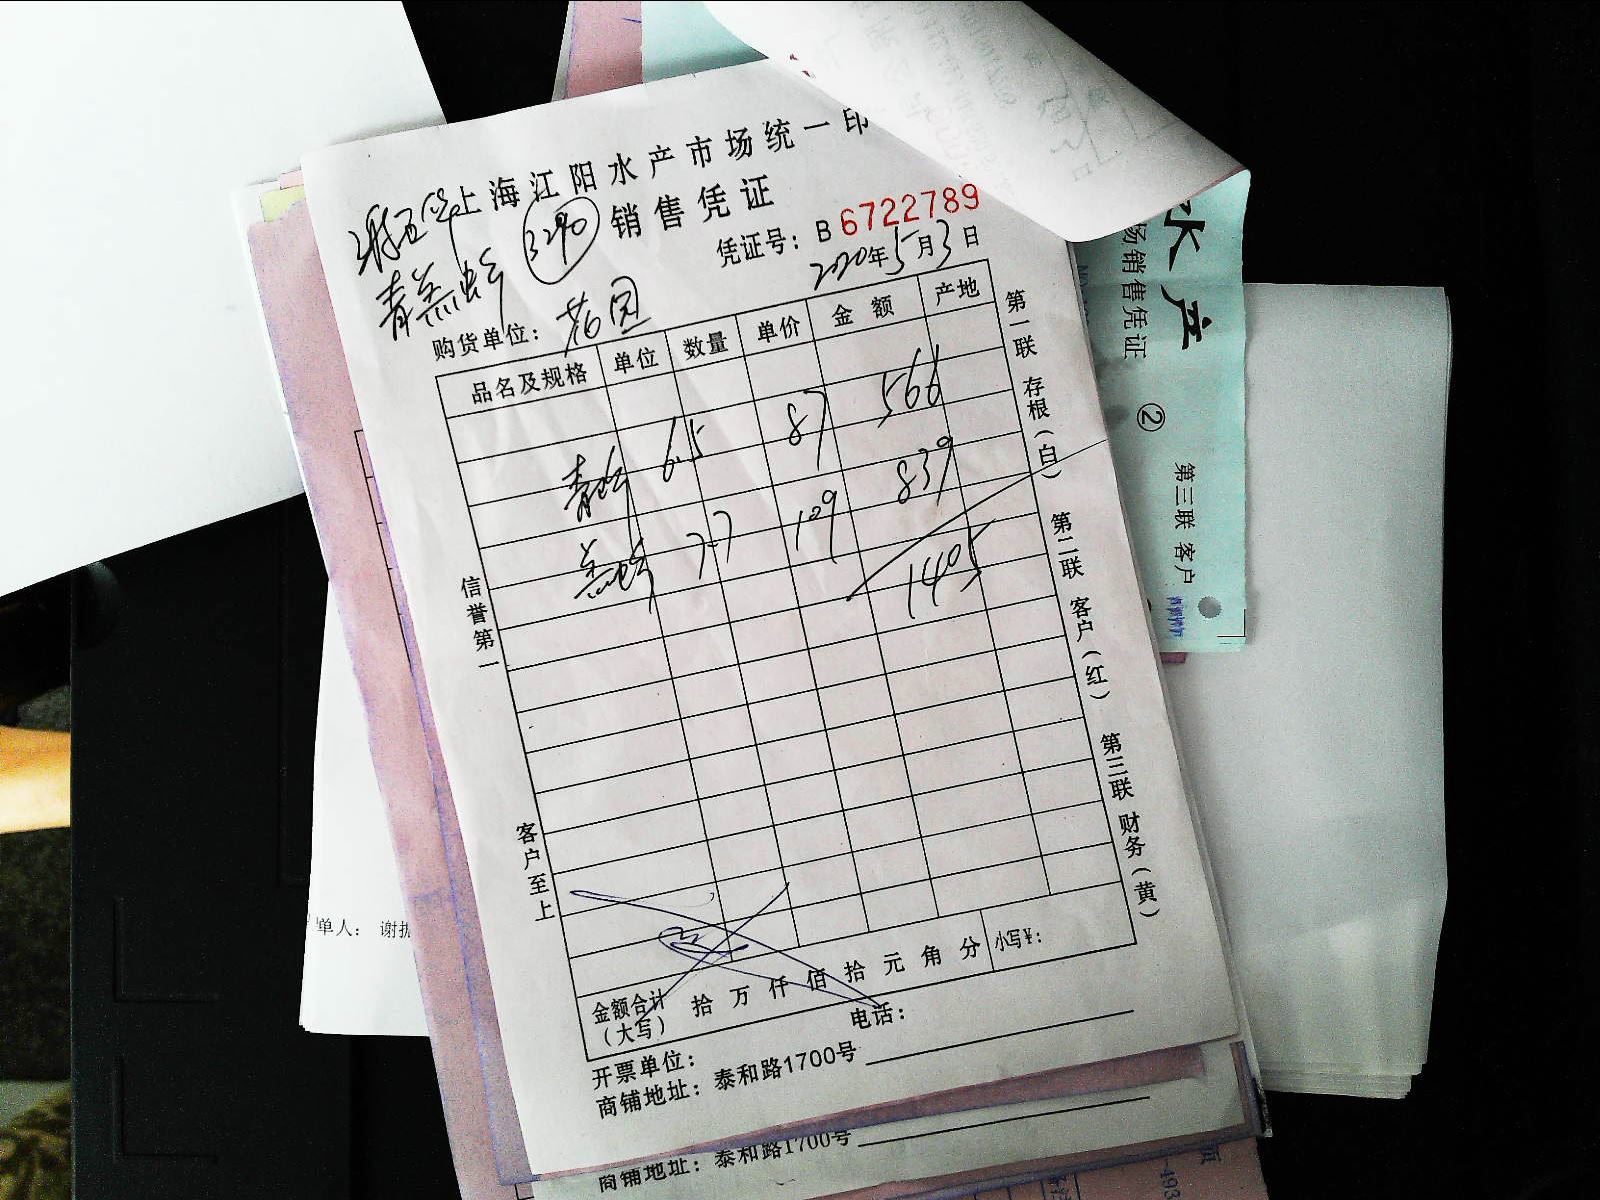 上海江阳水产市场统一印
销售凭证
3290
凭证号：B 6722789
2020年5月3日
购货单位：花园
品名及规格 单位 数量 单价 金额 产地
6.5 87 566
7.7 109 839
1405
信誉第一
客户至上
第一联 存根（白）
第二联 客户（红）
第三联 财务（黄）
金额合计（大写） 拾 万 仟 佰 拾 元 角 分 小写¥：
开票单位： 电话：
商铺地址：泰和路1700号
商铺地址：泰和路1700号
单人： 谢振
水产
场销售凭证
②
第三联 客户